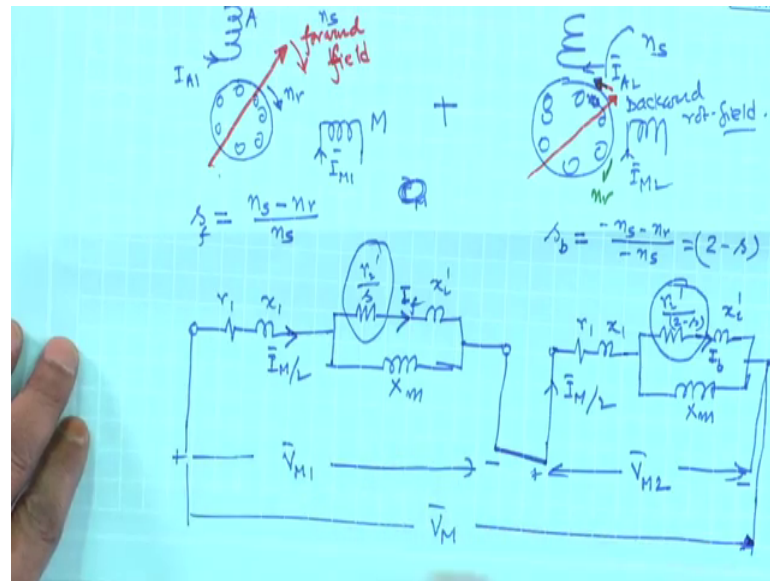 A
n_s
forward
field
I_A1
n_r
M
Ī_M1
+
n_s
Ī_A2
backward
rot. field.
n_r
Ī_M2
s_f = (n_s - n_r) / n_s
s_b = (-n_s - n_r) / (-n_s) = (2-s)
r_1 x_1 r_2'/s I_f x_2'
Ī_M/2
X_m
r_1 x_1 r_2'/(2-s) I_b x_2'
Ī_M/2
X_m
+ V̄_M1 -
+ V̄_M2 -
V̄_M